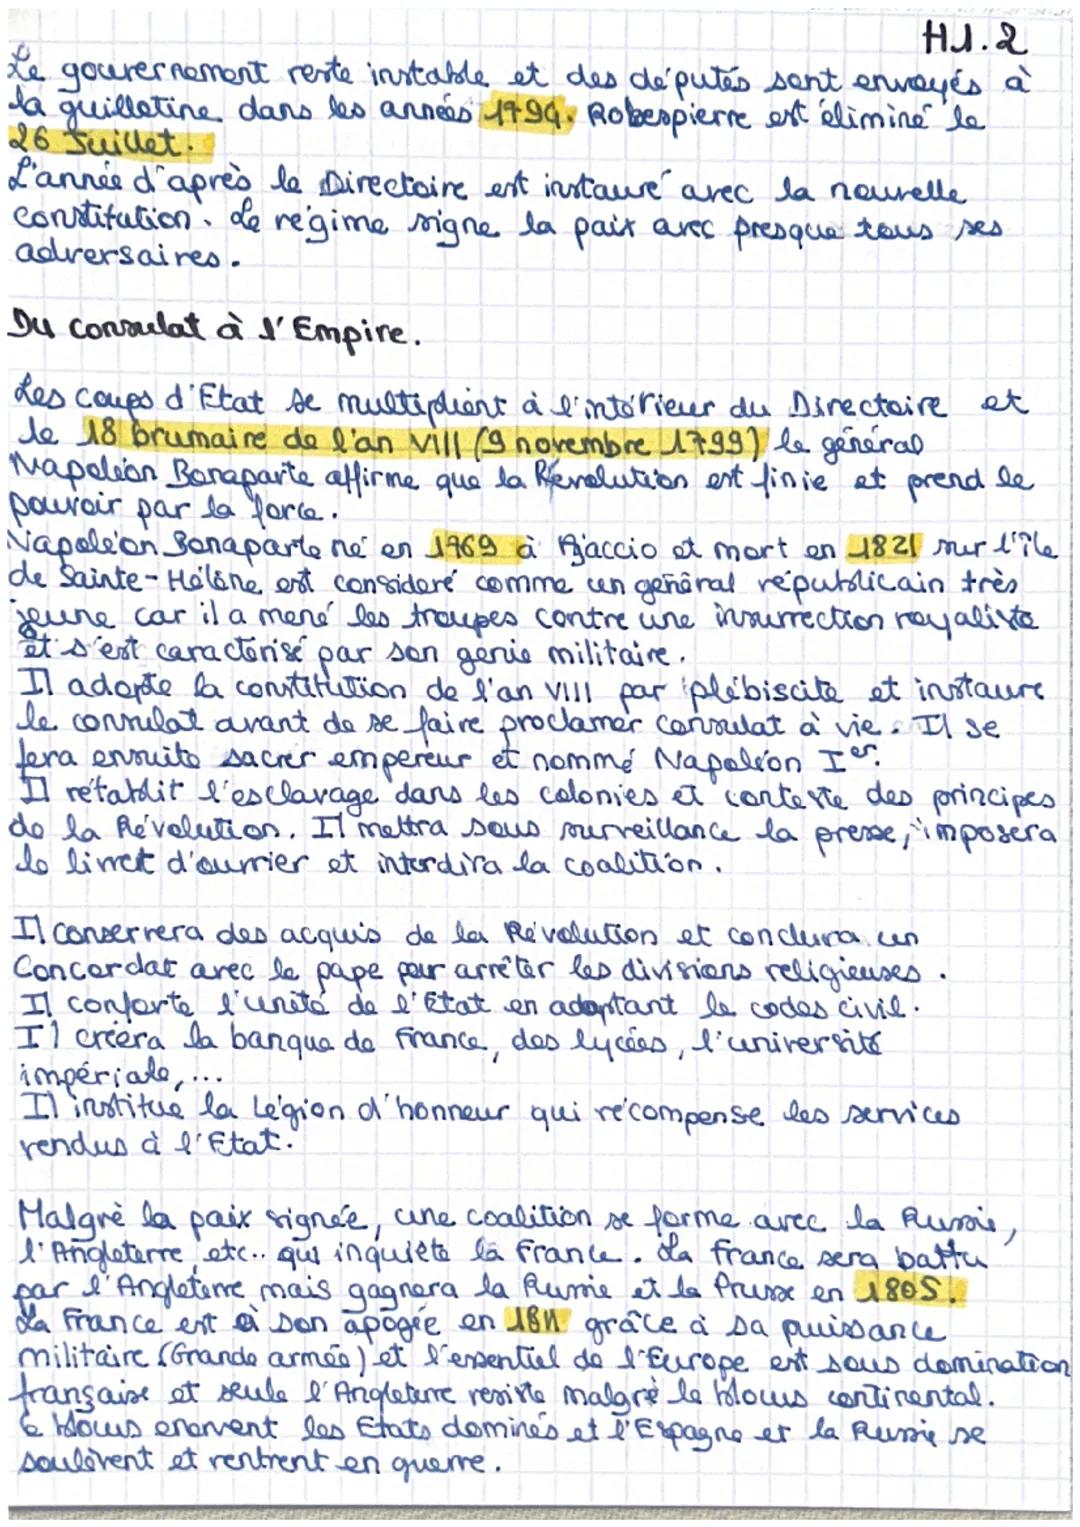 H1.2
Le gouvernement reste instable et des députés sont envoyés à
la guillotine dans les années 1794. Robespierre est éliminé le
26 Juillet.
L'année d'après le Directoire est instauré avec la nouvelle
constitution. Le régime signe la paix avec presque tous ses
adversaires.
Du consulat à l'Empire.
Les coups d'Etat se multiplient à l'intérieur du Directoire et
le 18 brumaire de l'an VIII (9 novembre 1799) le général
Napoléon Bonaparte affirme que la Révolution est finie et prend le
pouvoir par la force.
Napoléon Bonaparte né en 1769 à Ajaccio et mort en 1821 sur l'île
de Sainte-Hélène est considéré comme un général républicain très
jeune car il a mené les troupes contre une insurrection royaliste
et s'est caractérisé par son génie militaire.
Il adopte la constitution de l'an VIII par plébiscite et instaure
le consulat avant de se faire proclamer consulat à vie. Il se
fera ensuite sacrer empereur et nommé Napoléon Ier.
Il rétablit l'esclavage dans les colonies et conteste des principes
de la Révolution. Il mettra sous surveillance la presse, imposera
le livret d'ouvrier et interdira la coalition.
Il conservera des acquis de la Révolution et conclura un
Concordat avec le pape pour arrêter les divisions religieuses.
Il conforte l'unité de l'Etat en adoptant le codes civil.
Il créera la banque de France, des lycées, l'université
impériale,...
Il institue la Légion d'honneur qui récompense les services
rendus à l'Etat.
Malgrè la paix signée, une coalition se forme avec la Russie,
l'Angleterre, etc.. qui inquiète la France. La France sera battu
par l'Angleterre mais gagnera la Russie et la Prusse en 1805.
La France est à son apogée en 1811 grâce à sa puissance
militaire (Grande armée) et l'essentiel de l'Europe est sous domination
française et seule l'Angleterre resiste malgrè le blocus continental.
Le blocus enervent les Etats dominés et l'Espagne et la Russie se
soulèvent et rentrent en guerre.